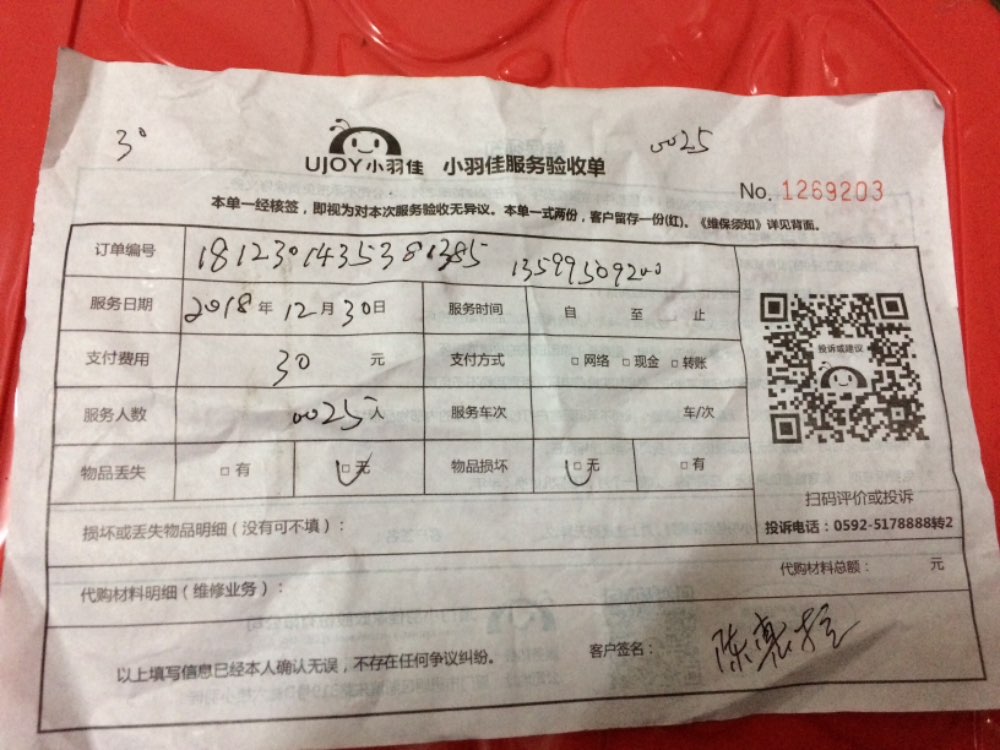 30 0025
UJOY小羽佳 小羽佳服务验收单
No. 1269203
本单一经核签，即视为对本次服务验收无异议。本单一式两份，客户留存一份(红)。《维保须知》详见背面。
订单编号 181230143538 1385 13599509200
服务日期 2018年12月30日 服务时间 自 至 止
投诉或建议
支付费用 30 元 支付方式 □网络 □现金 □转账
服务人数 0025人 服务车次 车/次
物品丢失 □有 □无 物品损坏 □无 □有
扫码评价或投诉
投诉电话：0592-5178888转2
损坏或丢失物品明细（没有可不填）：
代购材料明细（维修业务）： 代购材料总额： 元
以上填写信息已经本人确认无误，不存在任何争议纠纷。 客户签名： 陈惠